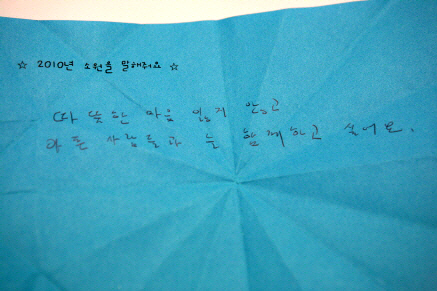 ☆ 2010년 소원을 말해줘요 ☆
따뜻한 마음 잃지 않고
아픈 사람들과 늘 함께하고 싶어요.